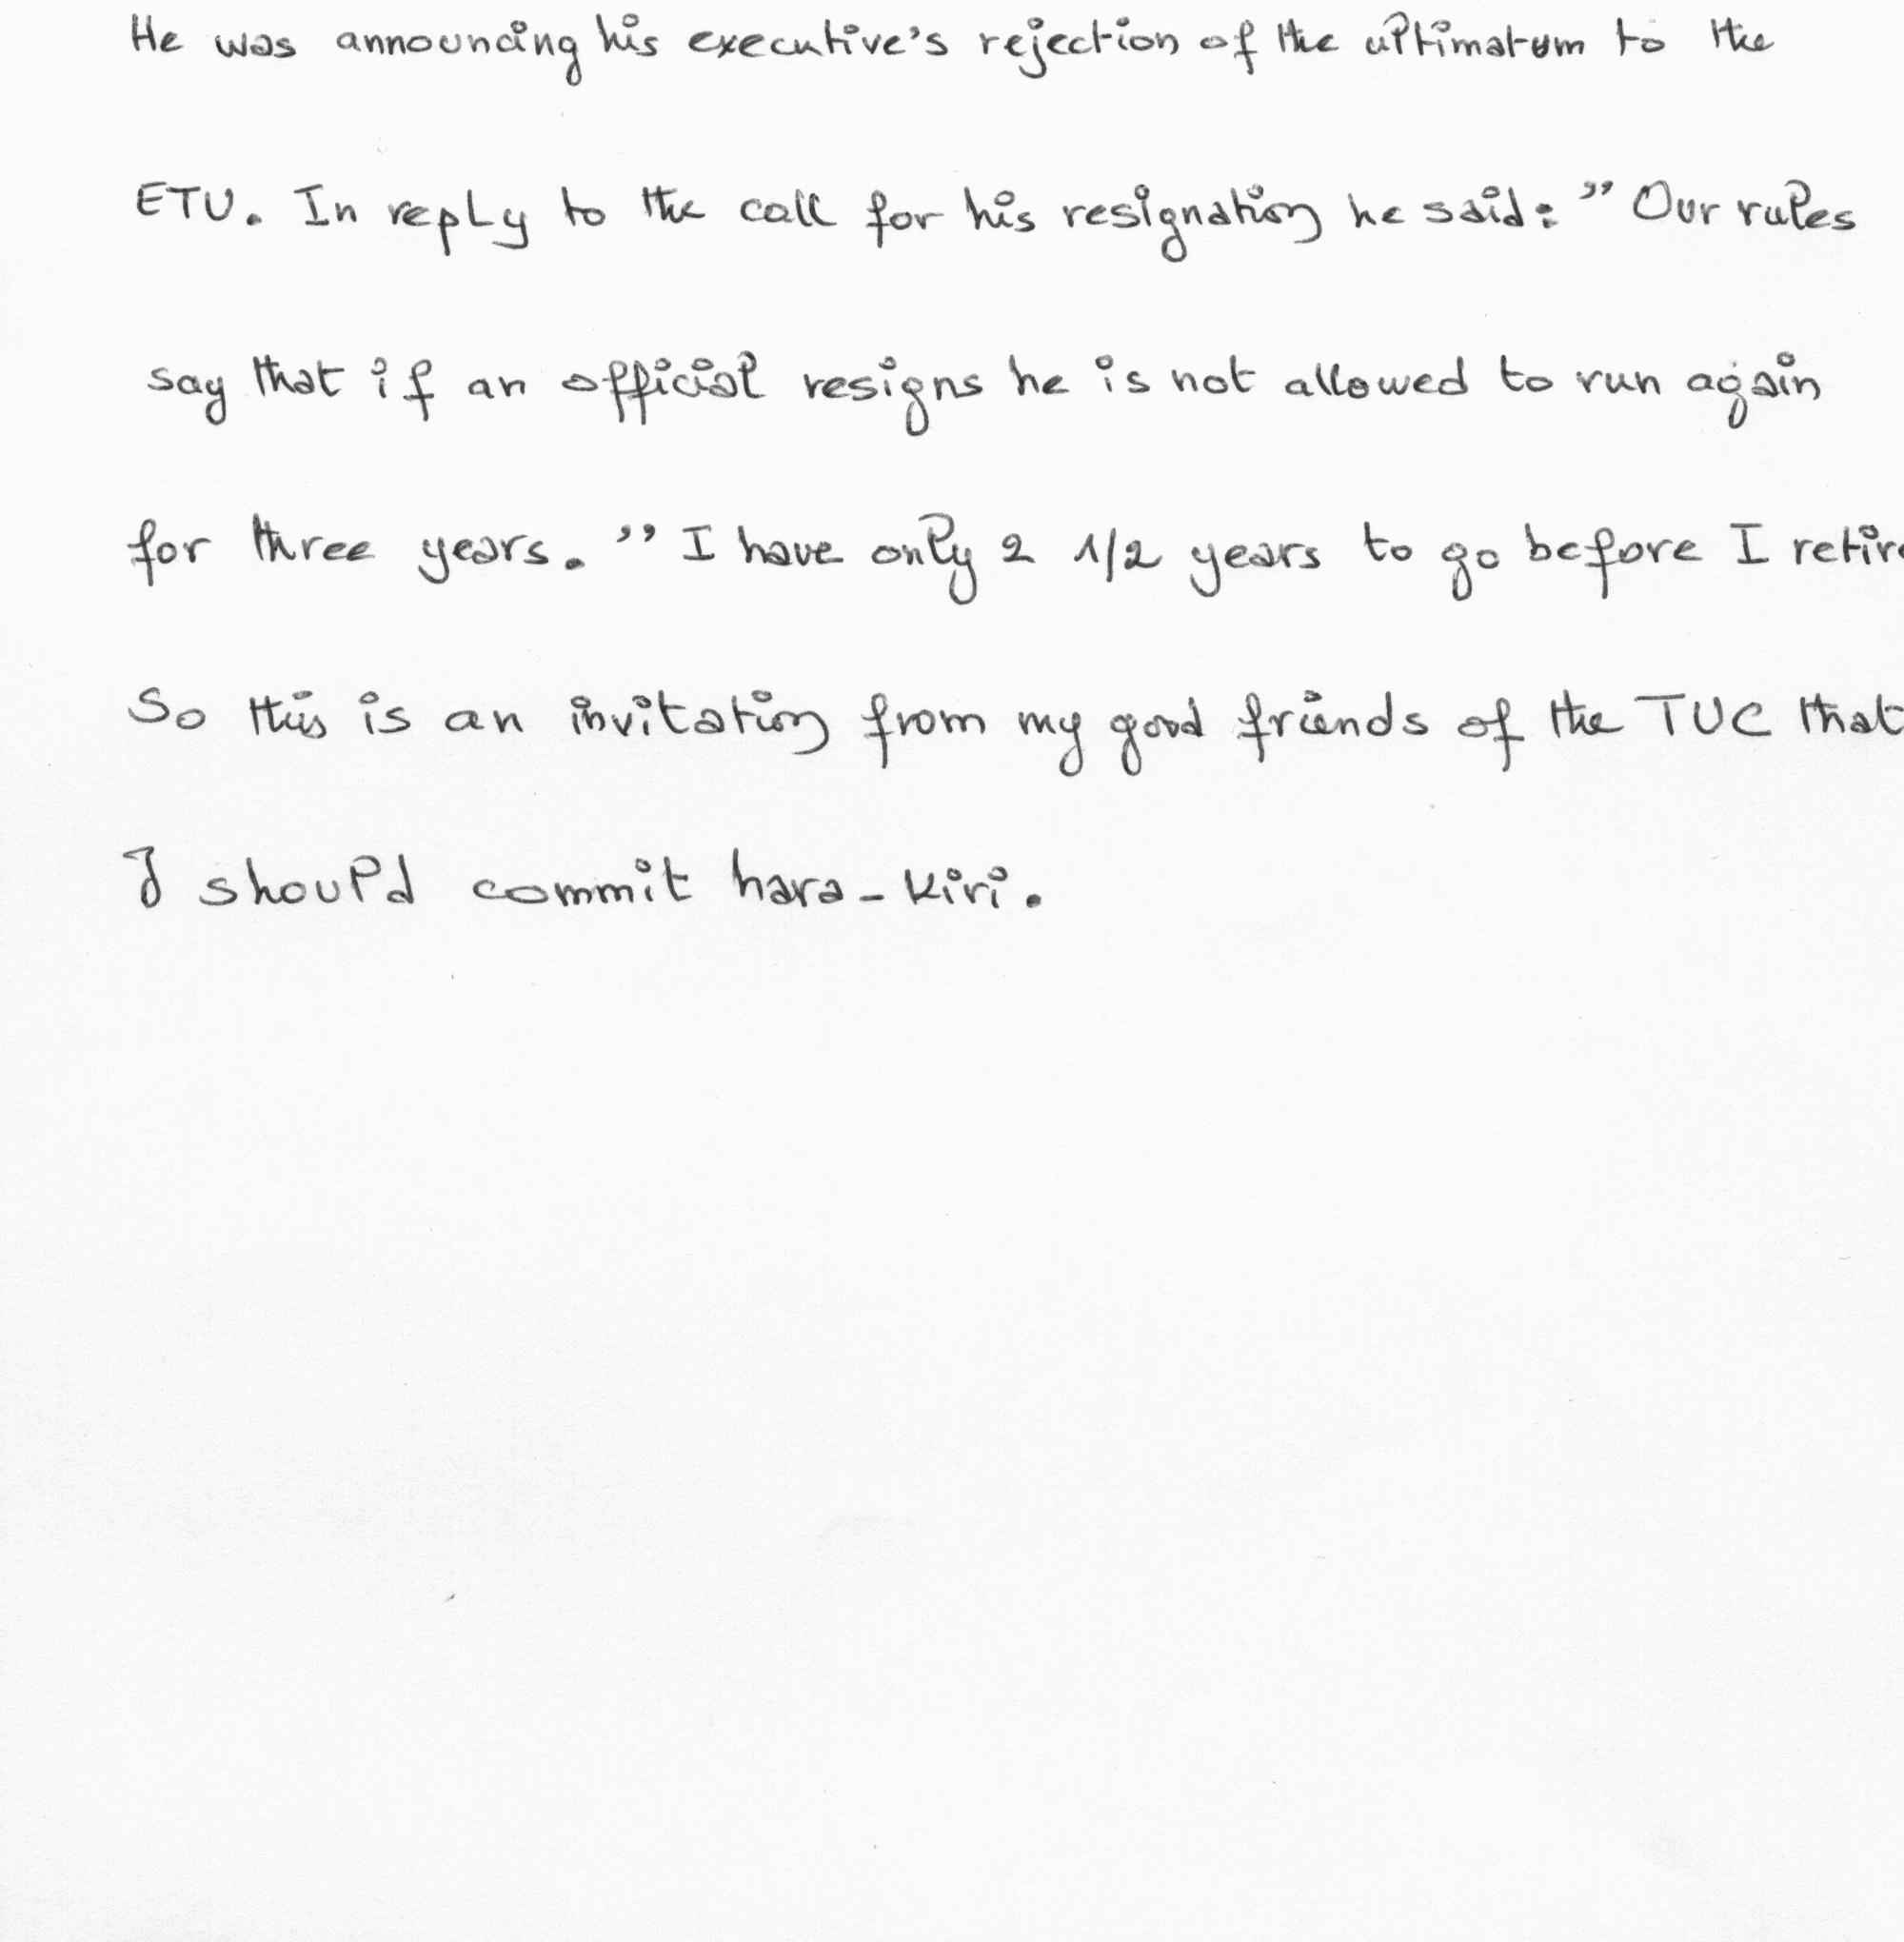 He was announcing his executive's rejection of the ultimatum to the
ETU. In reply to the call for his resignation he said: " Our rules
say that if an official resigns he is not allowed to run again
for three years. " I have only 2 1/2 years to go before I retire
So this is an invitation from my good friends of the TUC that
I should commit hara-kiri.